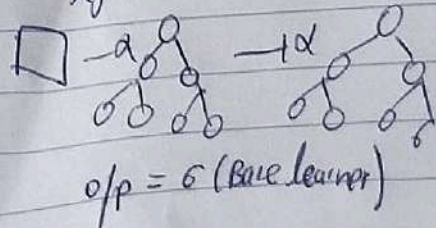 -α → α
o/p = 6 (Base learner)